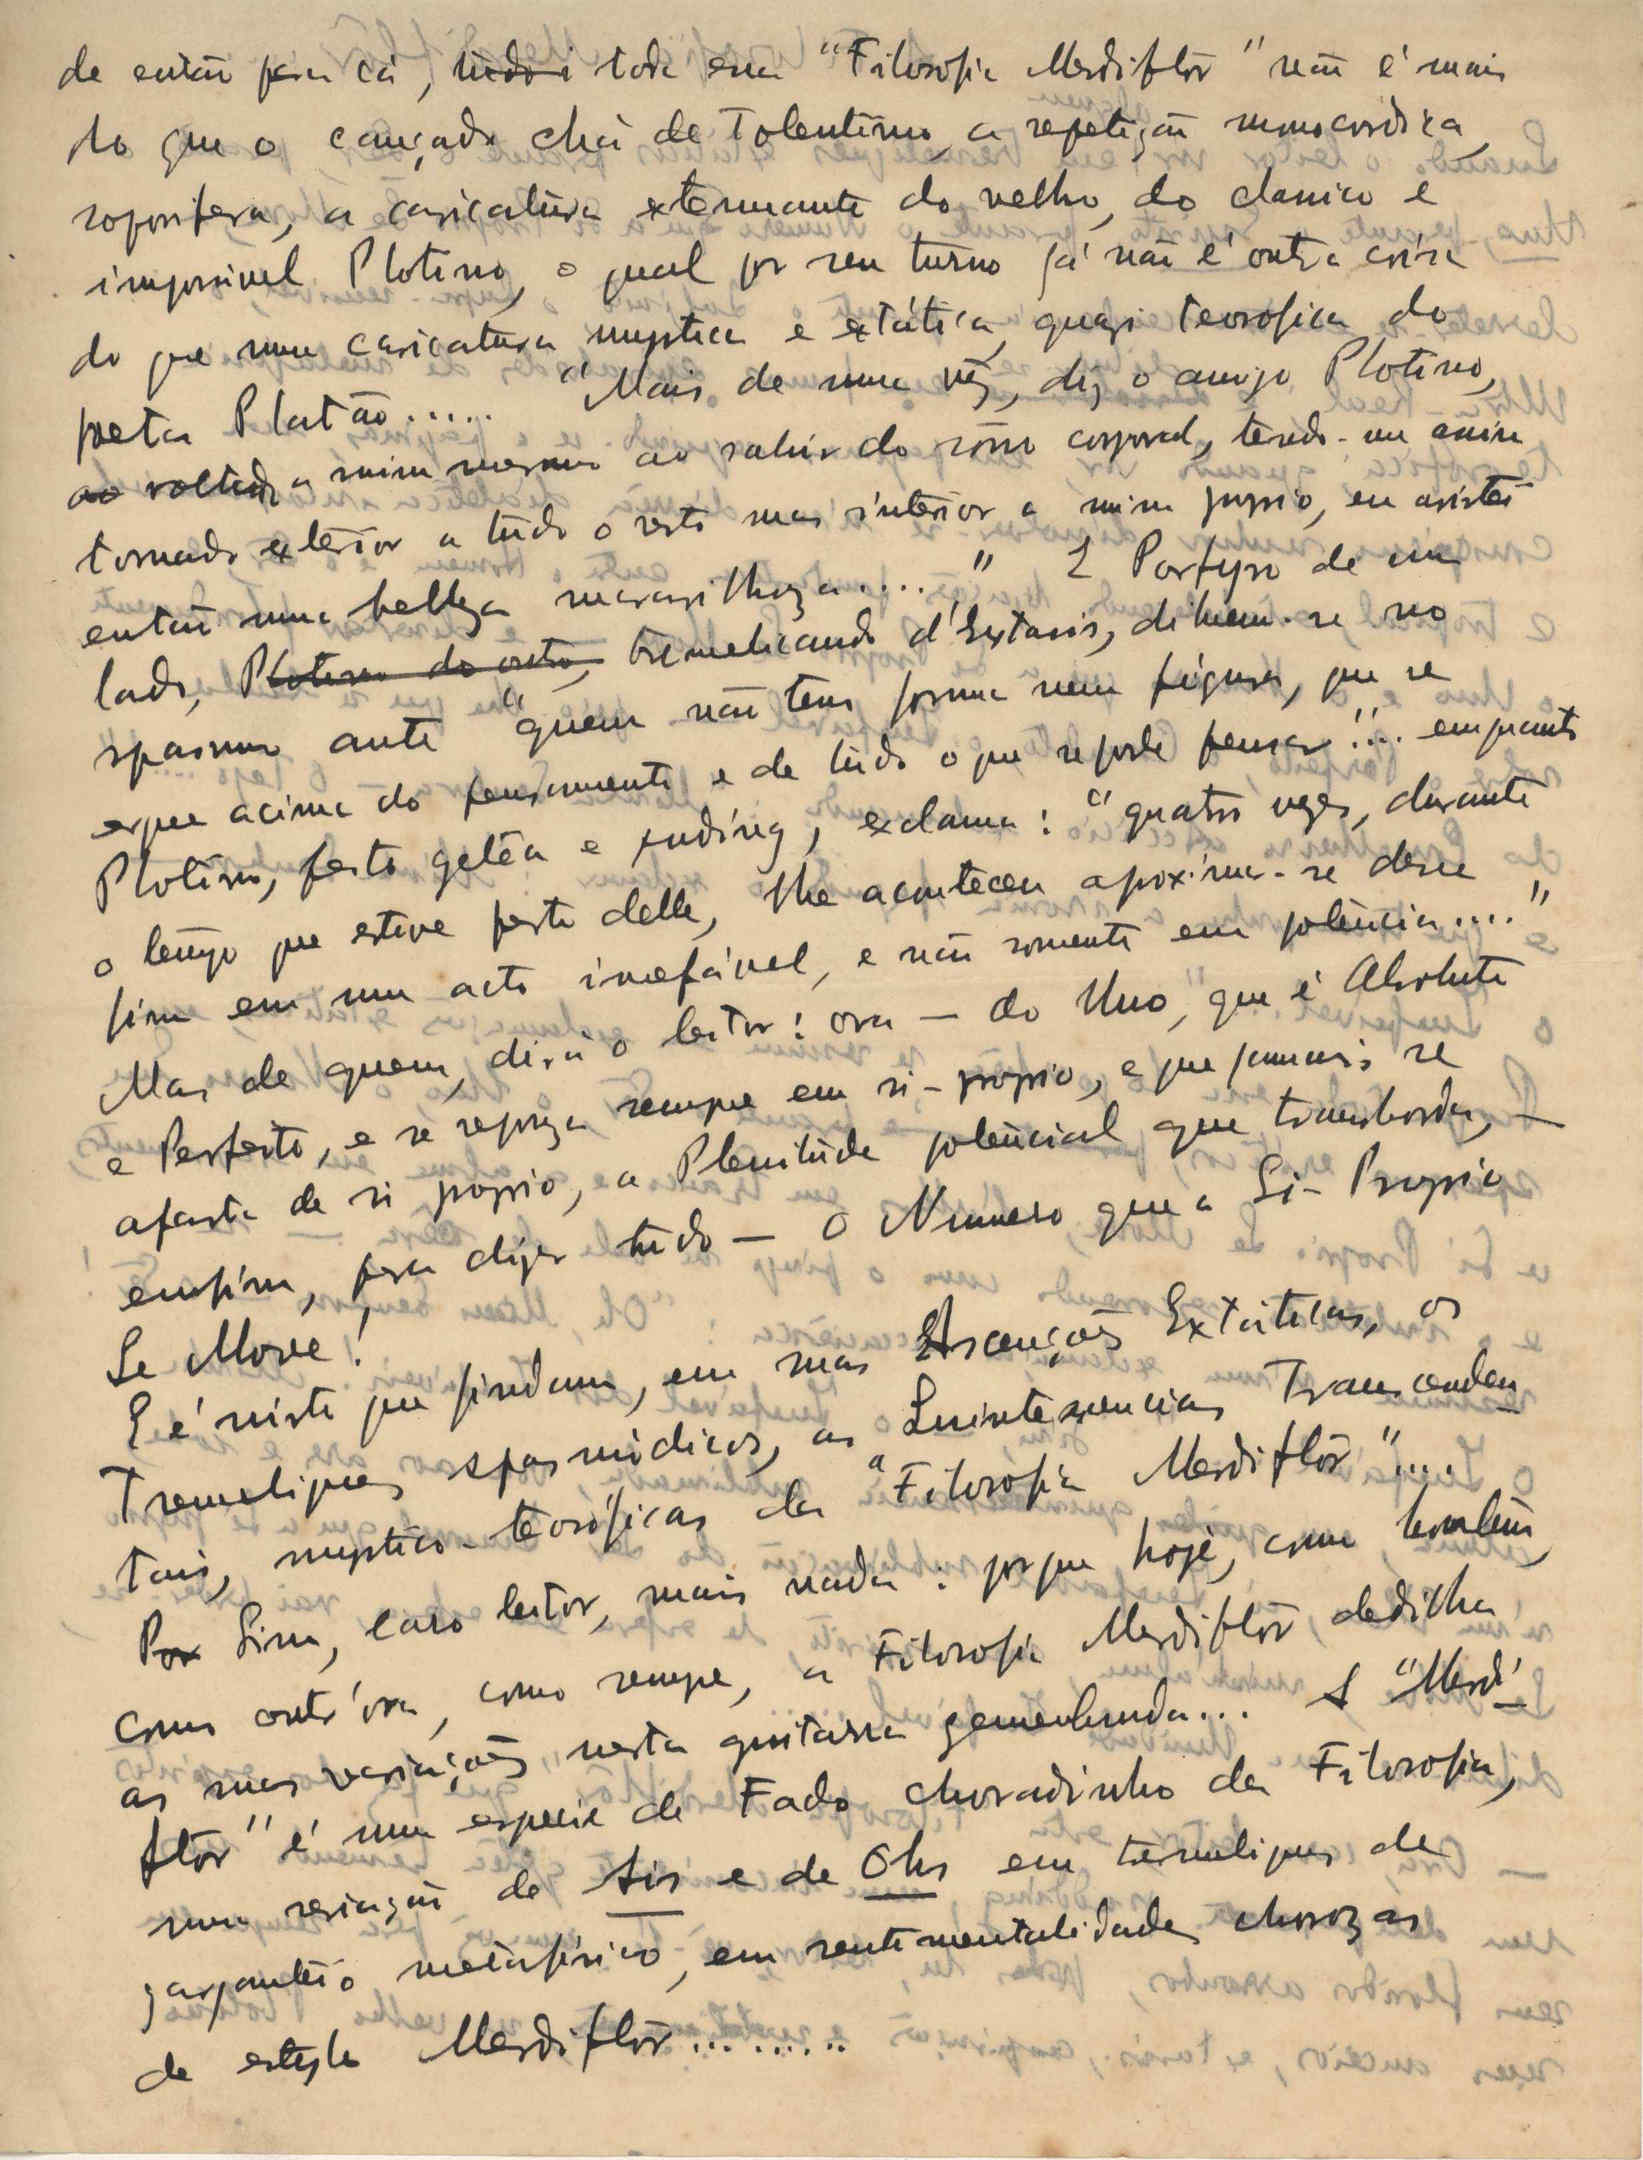 de então para cá, tudo i toda essa "Filosofia Merdiflôr" não é mais
do que o cançado chá de Tolentino, a repetição monocordica,
soporifera, a caricatura extenuante do velho, do classico e
impossivel Plotino, o qual por seu turno já não é outra coisa
do que uma caricatura mystica e extática, quazi teosofica do
poeta Platão..... "Mais de uma vêz, diz o amigo Plotino,
ao voltando a mim mesmo ao sahir do sôno corporal, tendo-me assim
tornado exterior a tudo o resto mas interior a mim proprio, eu assistei
então uma belleza maravilhoza...." E Porfyro de um
lado, Plotino do outro, tremelicando d'Extasis, diluem-se no
spasmo ante "quem não tem forma nem figura, que se
ergue acima do pensamento e de tudo o que se pode pensar"... emquanto
Plotino, feito geléa e puding, exclama: "quatro vezes, durante
o tempo que estive perto delle, lhe aconteceu aproximar-se desse
fim em um acto inefável, e não somente em potência...."
Mas de quem, dirá o leitor! ora — do Uno, que é Absoluto
e Perfeito, e se repoza sempre em si-proprio, e que jamais se
afasta de si proprio, a Plenitude potêncial que transborda, —
emfim, para dizer tudo — o Numero que a Si-Proprio
Se Move!
E é nisto que findam, em suas Ascenções Extáticas, os
Tremeliques spasmódicos, as Quintessencias Transcenden-
tais, mystico-teosóficas da "Filosofia Merdiflôr"....
Por Sim, caro leitor, mais nada: porque hoje, como hontem,
como outr'ora, como sempre, a Filosofia Merdiflôr dedilha
as suas variações nesta guitarra gemebunda... A "Merdi-
flôr" é uma especie de Fado choradinho da Filosofia,
uma variação de Ais e de Ohs em tremeliques de
garganteio metafisico, em sentimentalidades chorozas
de estylo Merdiflôr.........